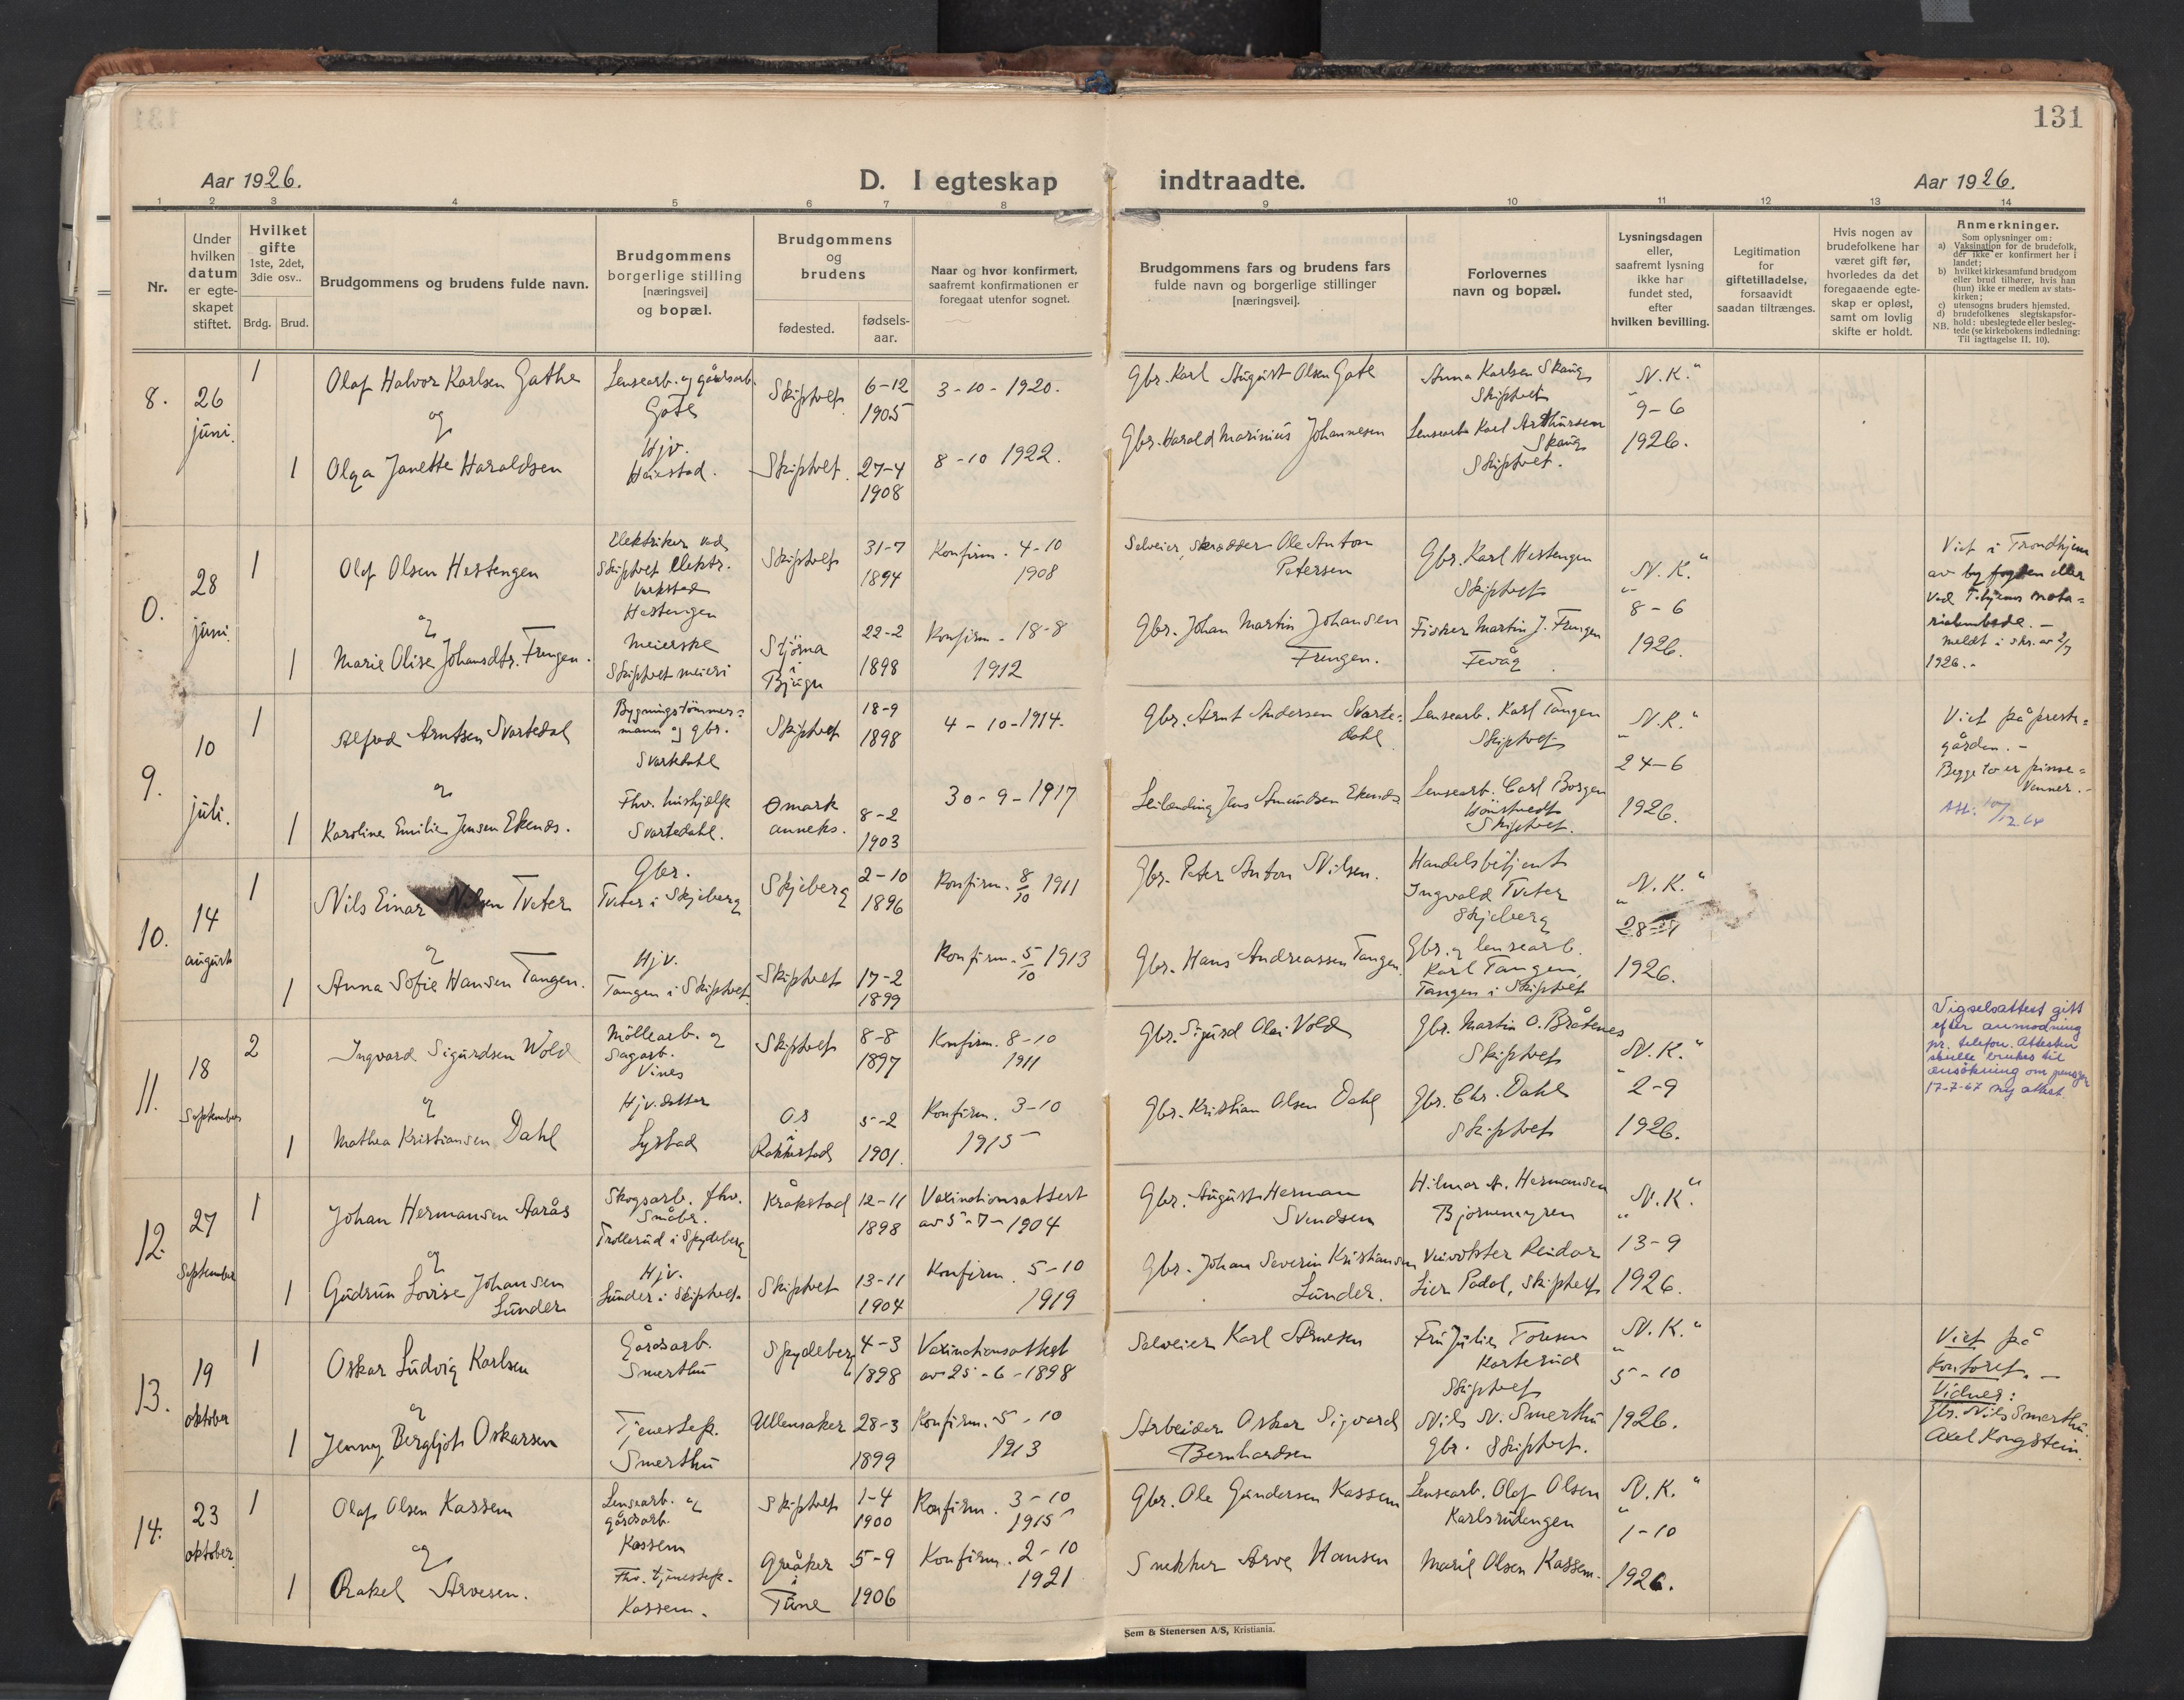 131
Aar 1926.
D. I egteskap indtraadte.
Aar 1926.
1 2 3 4 5 6 7 8 9 10 11 12 13 14
Nr.
Under
hvilken
datum
er egte-
skapet
stiftet.
Hvilket
gifte
1ste, 2det,
3die osv..
Brdg. Brud.
Brudgommens og brudens fulde navn.
Brudgommens
borgerlige stilling
[næringsvei]
og bopæl.
Brudgommens
og
brudens
fødested.
fødsels-
aar.
Naar og hvor konfirmert,
saafremt konfirmationen er
foregaat utenfor sognet.
Brudgommens fars og brudens fars
fulde navn og borgerlige stillinger
[næringsvei].
Forlovernes
navn og bopæl.
Lysningsdagen
eller,
saafremt lysning
ikke har
fundet sted,
efter
hvilken bevilling.
Legitimation
for
giftetilladelse,
forsaavidt
saadan tiltrænges.
Hvis nogen av
brudefolkene har
været gift før,
hvorledes da det
foregaaende egte-
skap er opløst,
samt om lovlig
skifte er holdt.
Anmerkninger.
Som oplysninger om:
a) Vaksination for de brudefolk,
der ikke er konfirmert her i
landet;
b) hvilket kirkesamfund brudgom
eller brud tilhører, hvis han
(hun) ikke er medlem av stats-
kirken;
c) utensogns bruders hjemsted.
d) brudefolkenes slegtskapsfor-
hold: ubeslegtede eller besleg-
NB. tede (se kirkebokens indledning:
Til iagttagelse II, 10).
8.
26
juni.
1
Olaf Halvor Karlsen Gathe
og
1
Olga Janette Haraldsen
Lensearb. og gårdsarb.
Gate
Hjv.
Haiestad.
Skiptvet
6-12
1905
3-10-1920.
Skiptvet.
27-4
1908
8-10 1922.
Gbr. Karl August Olsen Gate
Gbr. Harald Marinius Johannesen
Anna Karlsen Skaug
Skiptvet
Lensearb. Karl Arthursen
Skaug
Skiptvet.
"N.K."
9-6
1926.
0.
28
juni.
1
Olof Olsen Hestengen
og
1
Marie Olise Johansdtr. Frengen.
Elektriker ved
Skiptvet elektr.
verkstad
Hestengen
Meierske
Skiptvet meieri
Skiptvet
31-7
1894
Konfirm. 4-10
1908
Stjørna
i
Bjugn
22-2
1898
Konfirm. 18-8
1912
Selveier, skrædder Ole Anton
Petersen
Gbr. Johan Martin Johansen
Frengen.
Gbr. Karl Hestengen
Skiptvet
Fisker Martin J. Frengen
Fevåg.
"N.K."
8-6
1926.
Viet i Trondhjem
av byfogden eller
ved T.hjems nota=
rialembede. -
Meldt i skr. av 2/7
1926.-
9.
10
juli.
1
Alfred Arntsen Svartedal
og
1
Karoline Emilie Jensen Ekenes.
Bygningstømmer=
mann og gbr.
Svartedahl
Fhv. hushjelp
Svartedahl.
Skiptvet
18-9
1898
4-10-1914.
Omark
anneks.
8-2
1903
30-9-1917
Gbr. Arnt Andersen Svarte=
dahl
Leilending Jens Amundsen Ekenes
Lensearb. Karl Tangen
Skiptvet
Lensearb. Carl Borgen
Skiptvet.
"N.K."
24-6
1926.
Viet på preste=
gården. -
Begge to er pinse=
venner. -
Att. 10/12.64
10.
14
august
1
Nils Einar Nilsen Tveter
og
1
Anna Sofie Hansen Tangen.
Gbr.
Tveter i Skjeberg
Hjv.
Tangen i Skiptvet
Skjeberg
2-10
1896
Konfirm. 8/10 1911
Skiptvet
17-2
1899
Konfirm. 5/10 1913
Gbr. Peter Anton Nilsen.
Gbr. Hans Andreassen Tangen.
Handelsbetjent
Ingvald Tveter
Skjeberg
Gbr. og lensearb.
Karl Tangen,
Tangen i Skiptvet
"N.K."
1926.
11.
18
September
2
Ingvard Sigurdsen Wold
og
1
Mathea Kristiansen Dahl
Møllearb. og
Sagarb.
Vines
Hjv. datter
Lystad
Skiptvet
8-8
1897
Konfirm. 8-10
1911
Os
i
Rakkestad
5-2
1901.
Konfirm. 3-10
1915
Gbr. Sigurd Olai Vold
Gbr. Kristian Olsen Dahl
Gbr. Martin O. Bråtenes
Skiptvet
Gbr. Chr. Dahl
Skiptvet
"N.K."
2-9
1926.
Vigselsattest gitt
efter anmodning
pr. telefon. Attesten
skulle brukes til
ansökning om pensjon
17-7-67 ny attest.
12.
27
September
1
Johan Hermansen Aarås
og
1
Gudrun Lovise Johansen
Lunder
Skogsarb. fhv.
Småbr.
Trollerud i Spydeberg
Hjv.
Lunder i Skiptvet.
Kråkstad
12-11
1898
Vaxinationsattest
av 5-7-1904
Skiptvet
13-11
1904
Konfirm. 5-10
1919
Gbr. August Herman
Svendsen
Gbr. Johan Severin Kristiansen
Lunder.
Hilmar A. Hermansen
Bjørnemyren
Veivokter Reidar
Lier Padal, Skiptvet
"N.K."
13-9
1926.
13.
19
oktober
1
Oskar Ludvig Karlsen
og
1
Jenny Bergljot Oskarsen
Gårdsarb.
Smerthu
Tjenestep.
Smerthu
Spydeberg
4-3
1898
Vaxinationsattest
av 25-6-1898
Ullensaker
28-3
1899
Konfirm. 5-10
1913
Selveier Karl Arnesen
Arbeider Oskar Sigvard
Bernhardsen
Fru Julie Toresen
Karterud
Skiptvet
Nils N. Smerthu
gbr. Skiptvet.
"N.K."
5-10
1926.
Viet på
kontoret. -
Vidner:
Gbr. Nils Smerthu.
Axel Kongstein.
14.
23
oktober
1
Olaf Olsen Kassem
og
1
Rakel Arvesen.
Lensearb. og
gårdsarb.
Kassem
Fhv. tjenestep.
Kassem.
Skiptvet
1-4
1900
Konfirm. 3-10
1915
Greåker
i
Tune
5-9
1906
Konfirm. 2-10
1921
Gbr. Ole Gundersen Kassem
Snekker Arve Hansen
Lensearb. Olaf Olsen
Karlsrudengen
Marie Olsen Kassem.
"N.K."
1-10
1926.
Sem & Stenersen A/S, Kristiania.